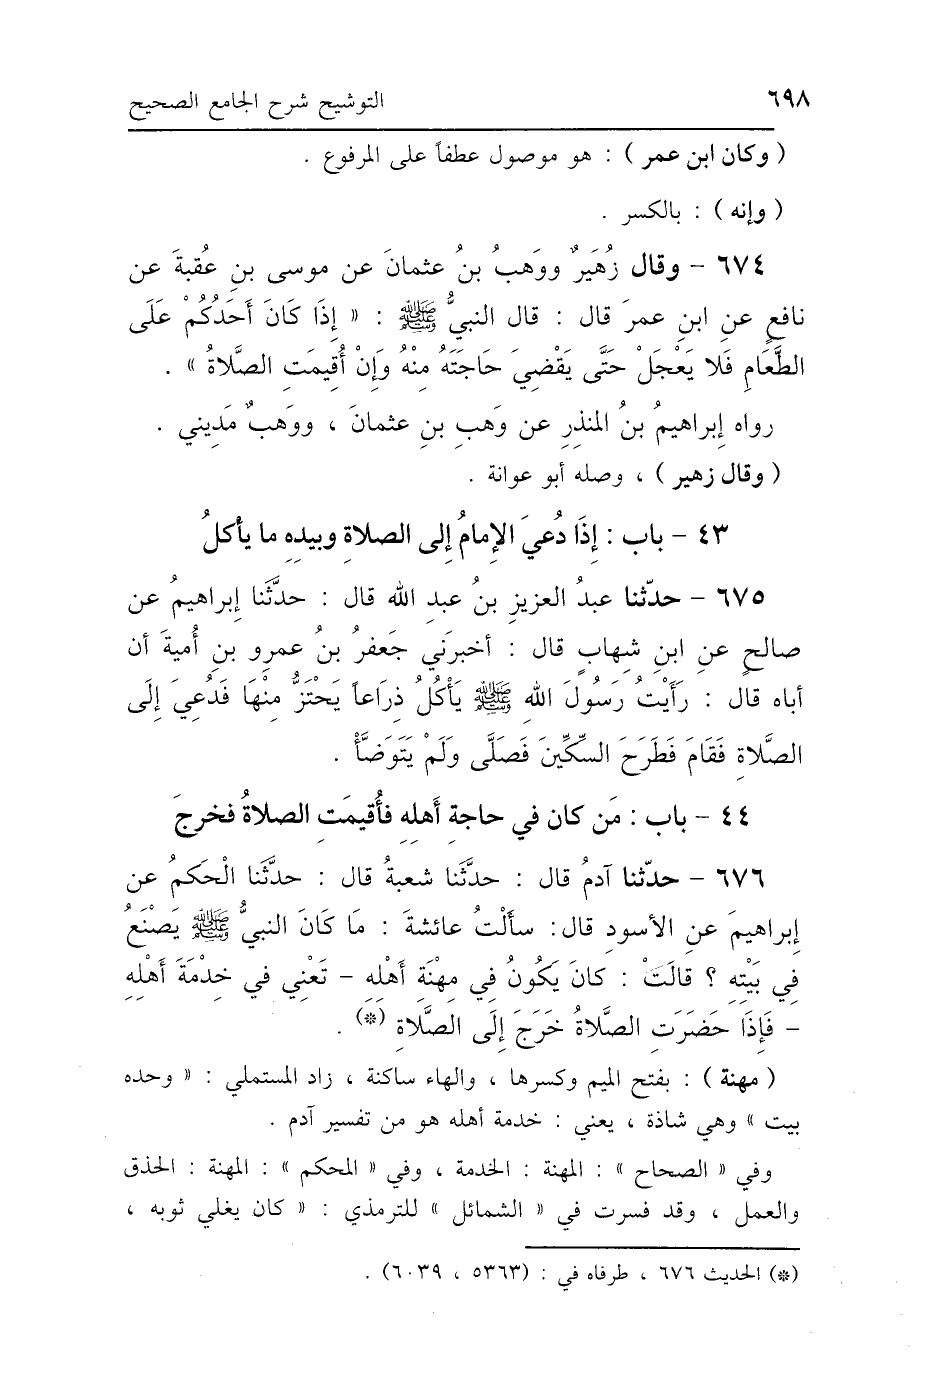 ٦٩٨
التوشيح شرح الجامع الصحيح
( وكان ابن عمر ) : هو موصول عطفاً على المرفوع .
( وإنه ) : بالكسر .
٦٧٤ - وقال زُهَيرٌ ووَهبُ بنُ عثمانَ عن موسى بنِ عُقبةَ عن
نافعٍ عنِ ابنِ عمرَ قال : قال النبيُّ ﷺ : « إِذَا كَانَ أَحَدُكُمْ عَلَى
الطَّعَامِ فَلا يَعْجَلْ حَتَّى يَقْضِيَ حَاجَتَهُ مِنْهُ وَإِنْ أُقِيمَتِ الصَّلاةُ » .
رواه إبراهيمُ بنُ المنذرِ عن وَهبِ بنِ عثمانَ ، ووَهبٌ مَدِيني .
( وقال زهير ) ، وصله أبو عوانة .
٤٣ - باب : إِذَا دُعيَ الإِمامُ إِلى الصلاةِ وبيدِهِ ما يأكلُ
٦٧٥ - حدّثنا عبدُ العزيزِ بنُ عبدِ الله قال : حدَّثَنا إبراهيمُ عن
صالحٍ عنِ ابنِ شهابٍ قال : أخبرَني جَعفرُ بنُ عمرِو بنِ أُميةَ أن
أباه قال : رَأَيْتُ رَسُولَ الله ﷺ يَأْكُلُ ذِرَاعاً يَحْتَزُّ مِنْهَا فَدُعِيَ إِلَى
الصَّلاةِ فَقَامَ فَطَرَحَ السِّكِّينَ فَصَلَّى وَلَمْ يَتَوَضَّأْ .
٤٤ - باب : مَن كان في حاجةِ أَهلِهِ فأُقيمَتِ الصلاةُ فخرجَ
٦٧٦ - حدّثنا آدمُ قال : حدَّثَنا شعبةُ قال : حدَّثَنا الْحَكمُ عن
إبراهيمَ عنِ الأسودِ قال: سألْتُ عائشةَ : مَا كَانَ النبيُّ ﷺ يَصْنَعُ
فِي بَيْتِهِ ؟ قالَتْ : كانَ يَكُونُ فِي مِهْنَةِ أَهْلِهِ - تَعْنِي فِي خِدْمَةَ أَهْلِهِ
- فَإِذَا حَضَرَتِ الصَّلاةُ خَرَجَ إِلَى الصَّلاةِ (*) .
( مهنة ) : بفتح الميم وكسرها ، والهاء ساكنة ، زاد المستملي : « وحده
بيت » وهي شاذة ، يعني : خدمة أهله هو من تفسير آدم .
وفي « الصحاح » : المهنة : الخدمة ، وفي « المحكم » : المهنة : الحذق
والعمل ، وقد فسرت في « الشمائل » للترمذي : « كان يغلي ثوبه ،
(*) الحديث ٦٧٦ ، طرفاه في : (٥٣٦٣ ، ٦٠٣٩) .